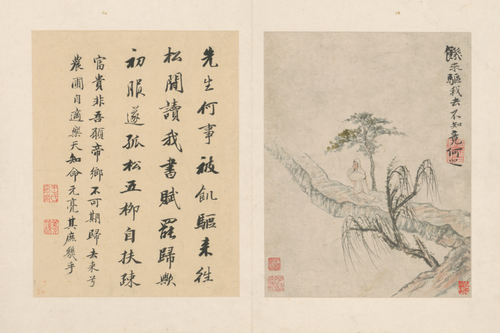 饑來驅我去不知竟何之
先生何事被飢驅來往
松間讀我書賦罷歸歟
初服遂孤松五柳自扶疎
富貴非吾願帝鄉不可期歸去來兮
農圃自適樂天知命元亮其庶幾乎